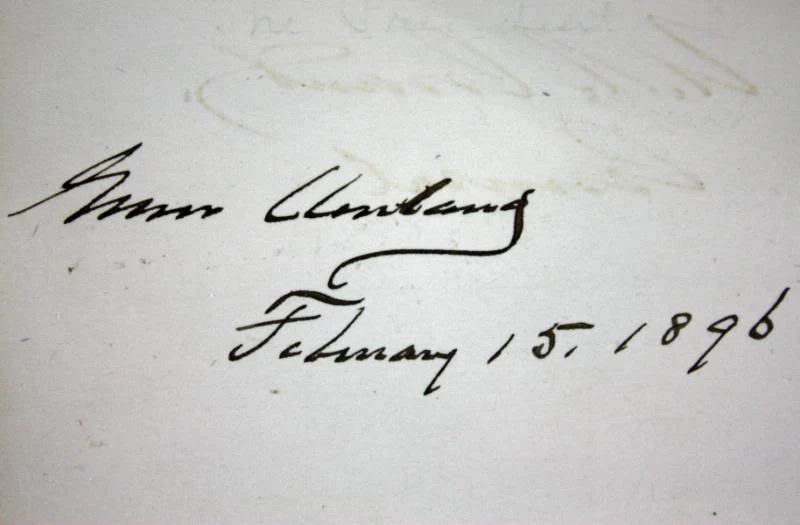 Grover Cleveland
February 15, 1896